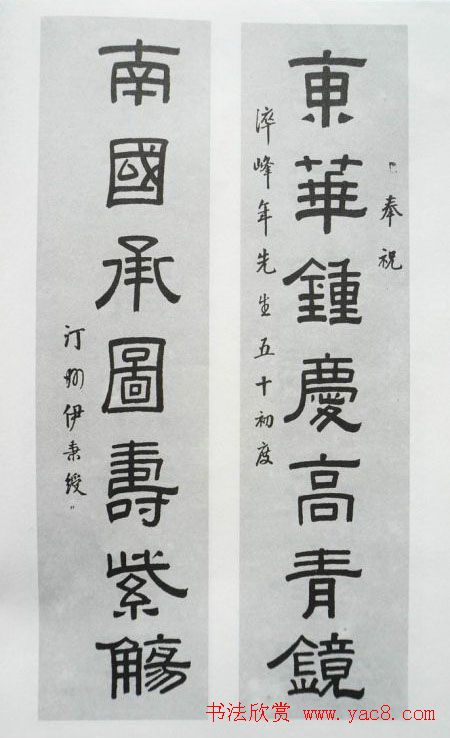 奉祝
東華鍾慶高青鏡
淬峰年先生五十初度
南國承圖壽紫觴
汀州伊秉綬
书法欣赏 www.yac8.com